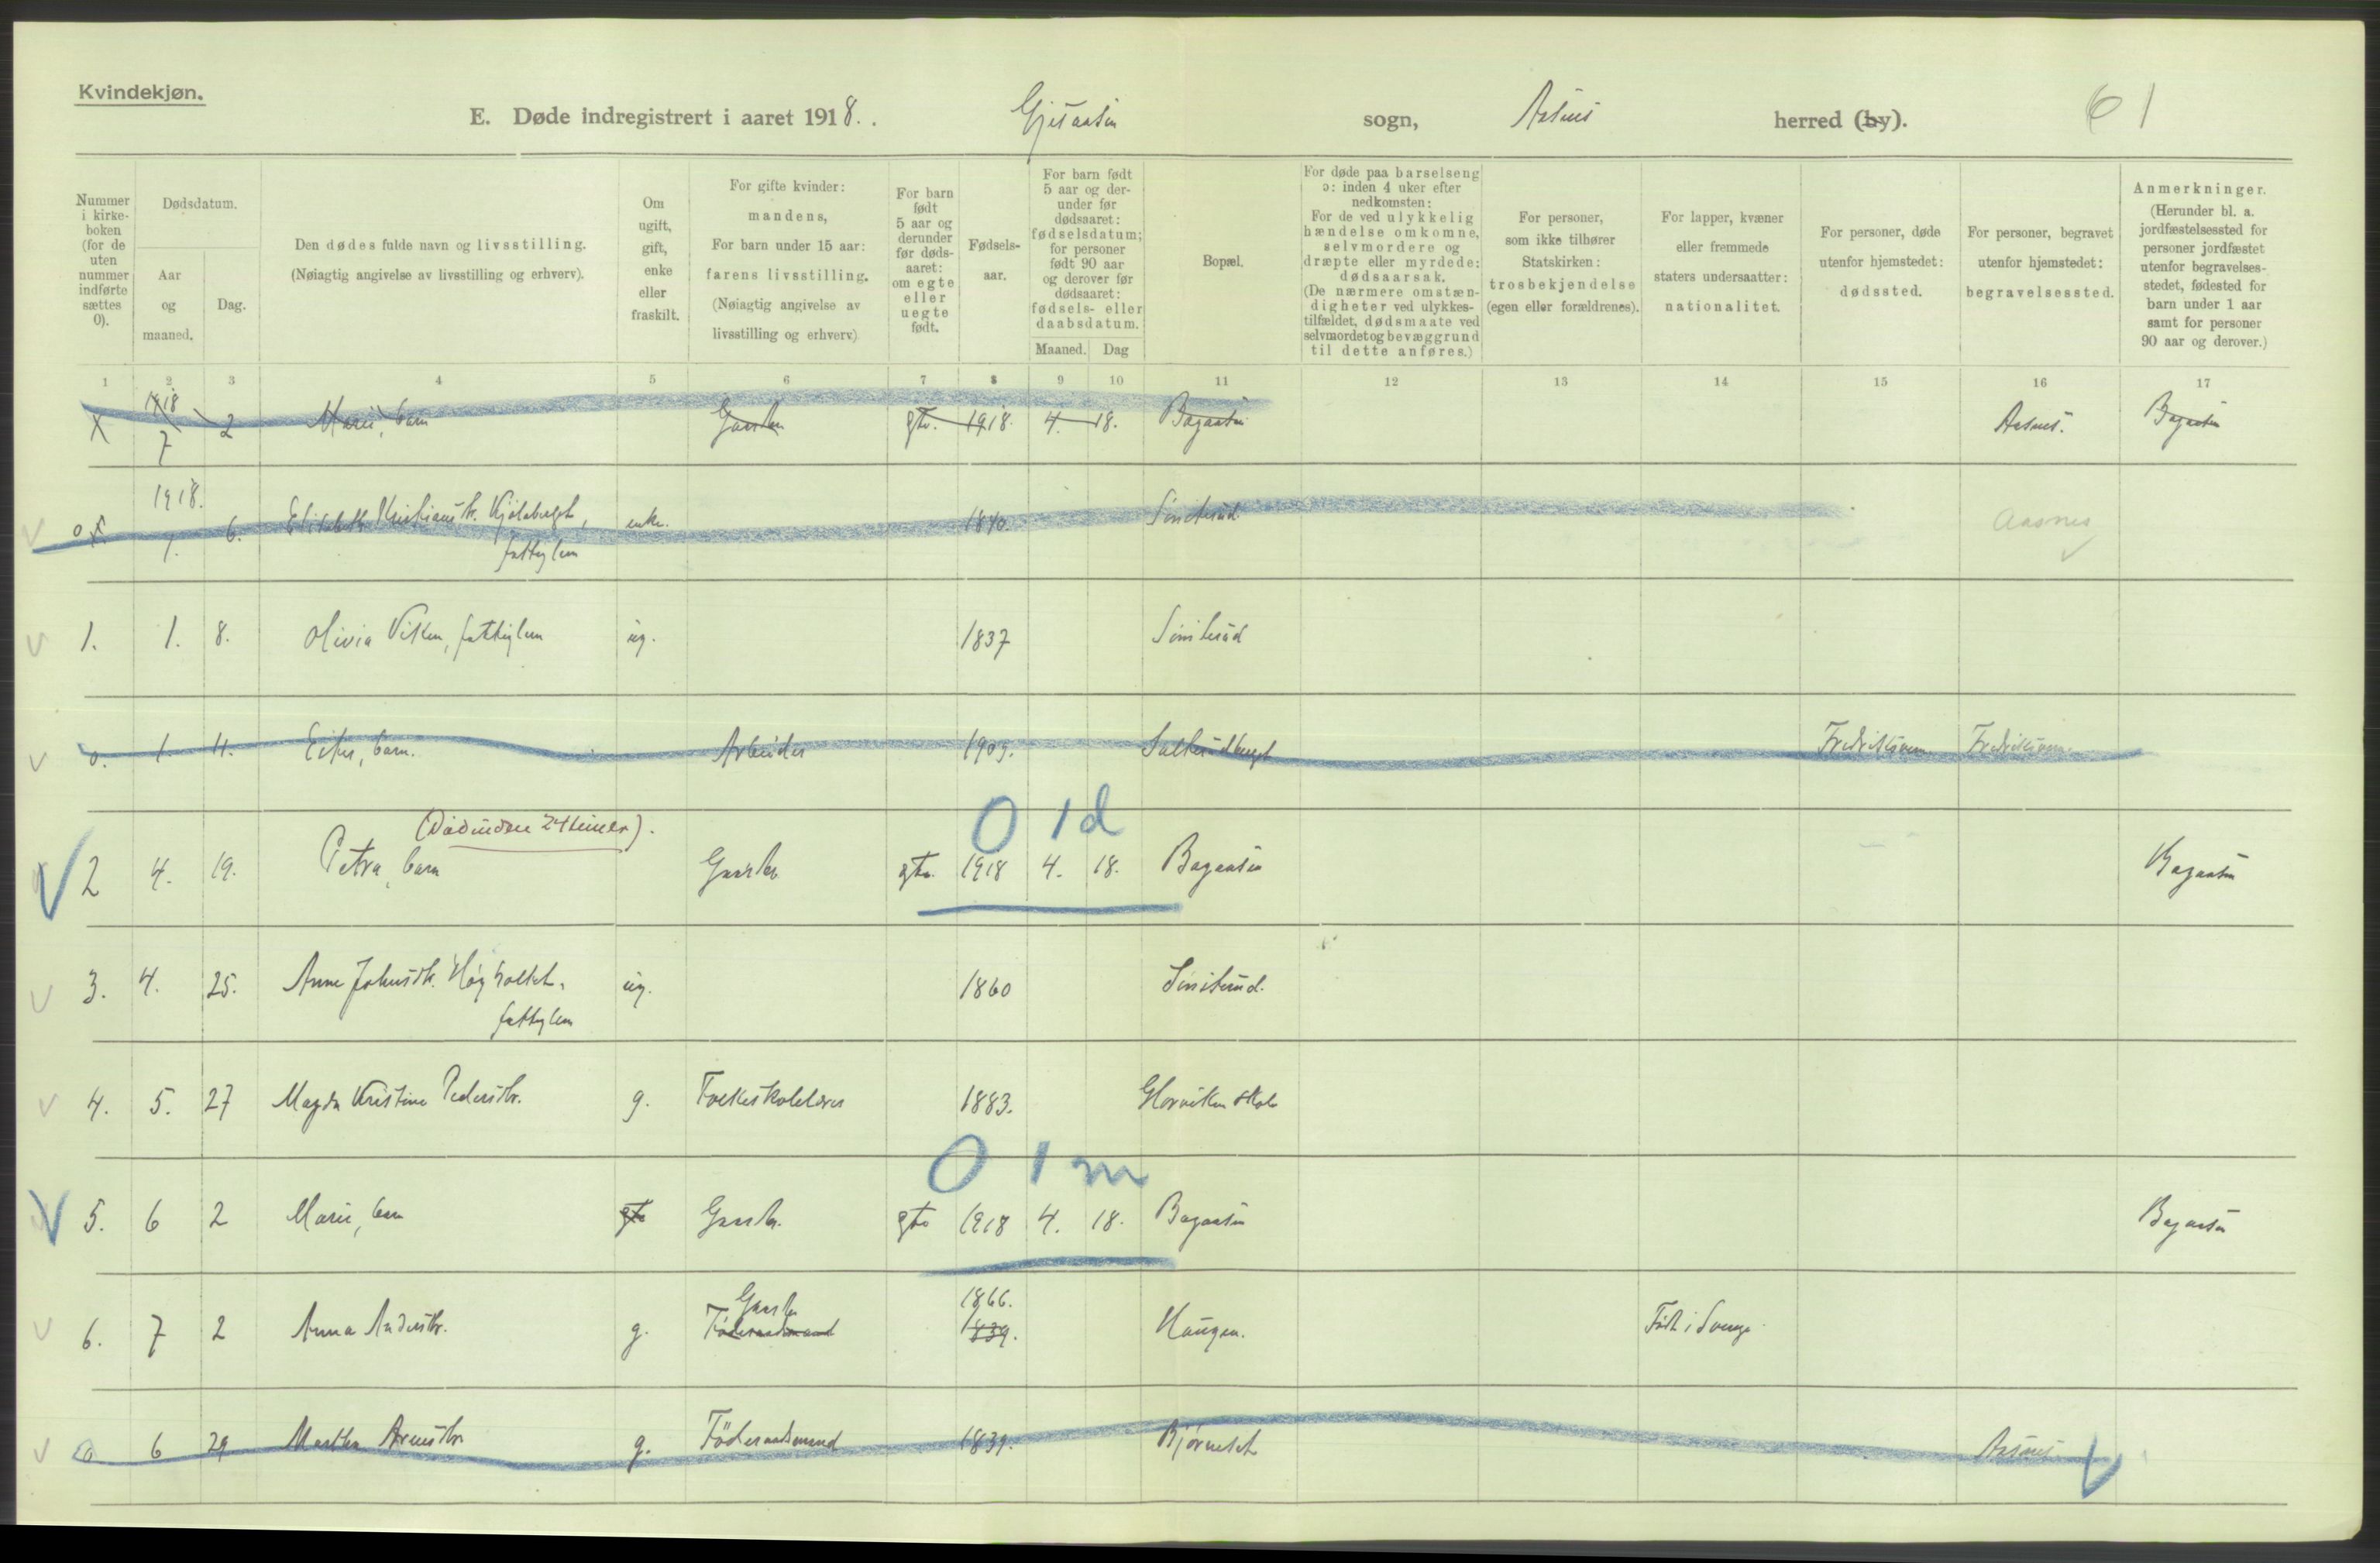 Kvindekjøn.
E. Døde indregistrert i aaret 1918. Gjesaasen sogn, Aasnes herred (by). 61
Nummer i kirkeboken (for de uten nummer indførte sættes 0).
Dødsdatum.
Aar og maaned.
Dag.
Den dødes fulde navn og livsstilling.
(Nøiagtig angivelse av livsstilling og erhverv).
Om ugift, gift, enke eller fraskilt.
For gifte kvinder: mandens,
For barn under 15 aar: farens livsstilling.
(Nøiagtig angivelse av livsstilling og erhverv)
For barn født 5 aar og derunder før dødsaaret: om egte eller uegte født.
Fødselsaar.
For barn født 5 aar og derunder før dødsaaret: fødselsdatum; for personer født 90 aar og derover før dødsaaret: fødsels- eller daabsdatum.
Maaned. Dag
Bopæl.
For døde paa barselseng ɔ: inden 4 uker efter nedkomsten:
For de ved ulykkelig hændelse omkomne, selvmordere og dræpte eller myrdede: dødsaarsak.
(De nærmere omstændigheter ved ulykkestilfældet, dødsmaate ved selvmord et og bevæggrund til dette anføres.)
For personer, som ikke tilhører Statskirken: trosbekjendelse (egen eller forældrenes).
For lapper, kvæner eller fremmede staters undersaatter: nationalitet.
For personer, døde utenfor hjemstedet: dødssted.
For personer, begravet utenfor hjemstedet: begravelsessted.
Anmerkninger.
(Herunder bl. a. jordfæstelsessted for personer jordfæstet utenfor begravelsesstedet, fødested for barn under 1 aar samt for personer 90 aar og derover.)
1 2 3 4 5 6 7 8 9 10 11 12 13 14 15 16 17
X 1918 7 2 Marie, barn Gaardbr. gte. 1918. 4. 18. Bagaasen Aasnes. Bagaasen
1918.
0 1. 6. Elisabeth Kristiansdtr. Kjølaberget, enke. 1840. Sønsterud. Aasnes
fattiglem
1. 1. 8. Olivia Viken, fattiglem ug. 1837 Sønsterud
0. 1. 11. Ester, barn. Arbeider 1909. Fredriksvern Fredriksvern
(Død inden 24 timer). 0 1 d
2 4. 19. Petra, barn Gaardbr. gte. 1918 4. 18. Bagaasen Bagaasen
3. 4. 25. Anne Johnsdtr. ug. 1860 Sønsterud.
fattiglem
4. 5. 27 Magda Kristine Pedersdtr. g. Folkeskolelærer 1883. skole
0 1 m
5. 6 2 Marie, barn gte Gaardbr. gte 1918 4. 18. Bagaasen Bagaasen
Gaardbr. 1866.
6. 7 2 Anna Andersdtr. g. Føderaadsmand 1839. Haugen. Født i Sverige
0 6 29 Marthea Arnesdtr. g. Föderaadsmand 1839. Bjørneset Aasnes